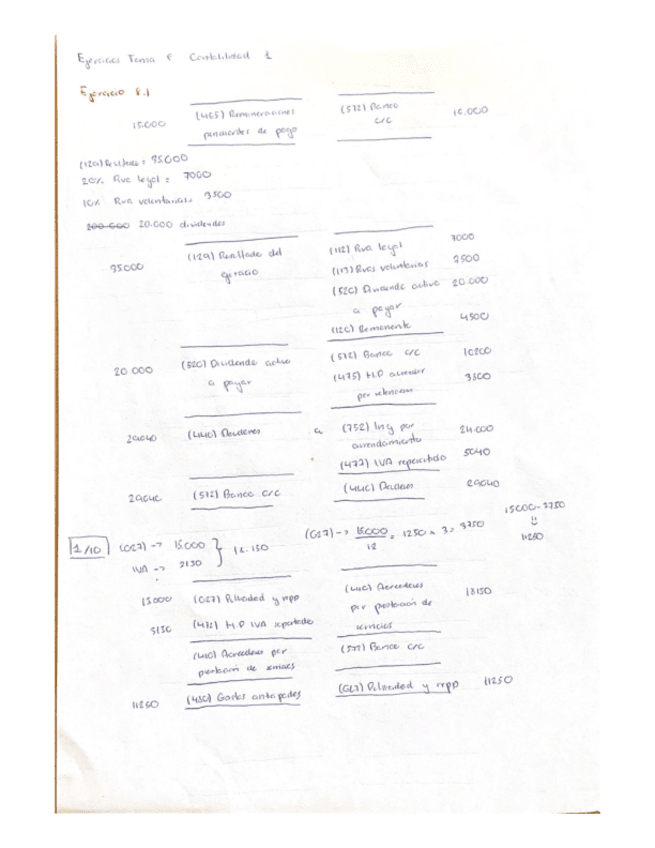 Ejercicios Tema 8 Contabilidad 1
Ejercicio 8.1
15.000 (465) Remuneraciones pendientes de pago (572) Banco c/c 15.000
(129) Resultado = 35.000
20% Rva legal = 7000
10% Rva voluntaria = 3500
20.000 dividendos
35000 (129) Resultado del ejercicio (112) Rva legal 7000
(113) Rvas voluntarias 3500
(526) Dividendo activo a pagar 20.000
(120) Remanente 4500
20.000 (526) Dividendo activo a pagar (572) Banco c/c
(475) H.P acreedor por retencion
29040 (440) Deudores a (752) Ing por arrendamiento 24.000
(477) IVA repercutido 5040
29040 (572) Banco c/c (440) Deudores 29040
1/10 (627) -> 15000
IVA -> } 18.150
(627) -> 15.000 / 12 = 1250 x 3 = 3750
15000 - 3750
11250
15000 (627) Publicidad y rrpp (410) Acreedores por prestación de servicios 18150
(472) H.P IVA soportado
(410) Acreedores por prestación de servicios (572) Banco c/c
11250 (480) Gastos anticipados (627) Publicidad y rrpp 11250